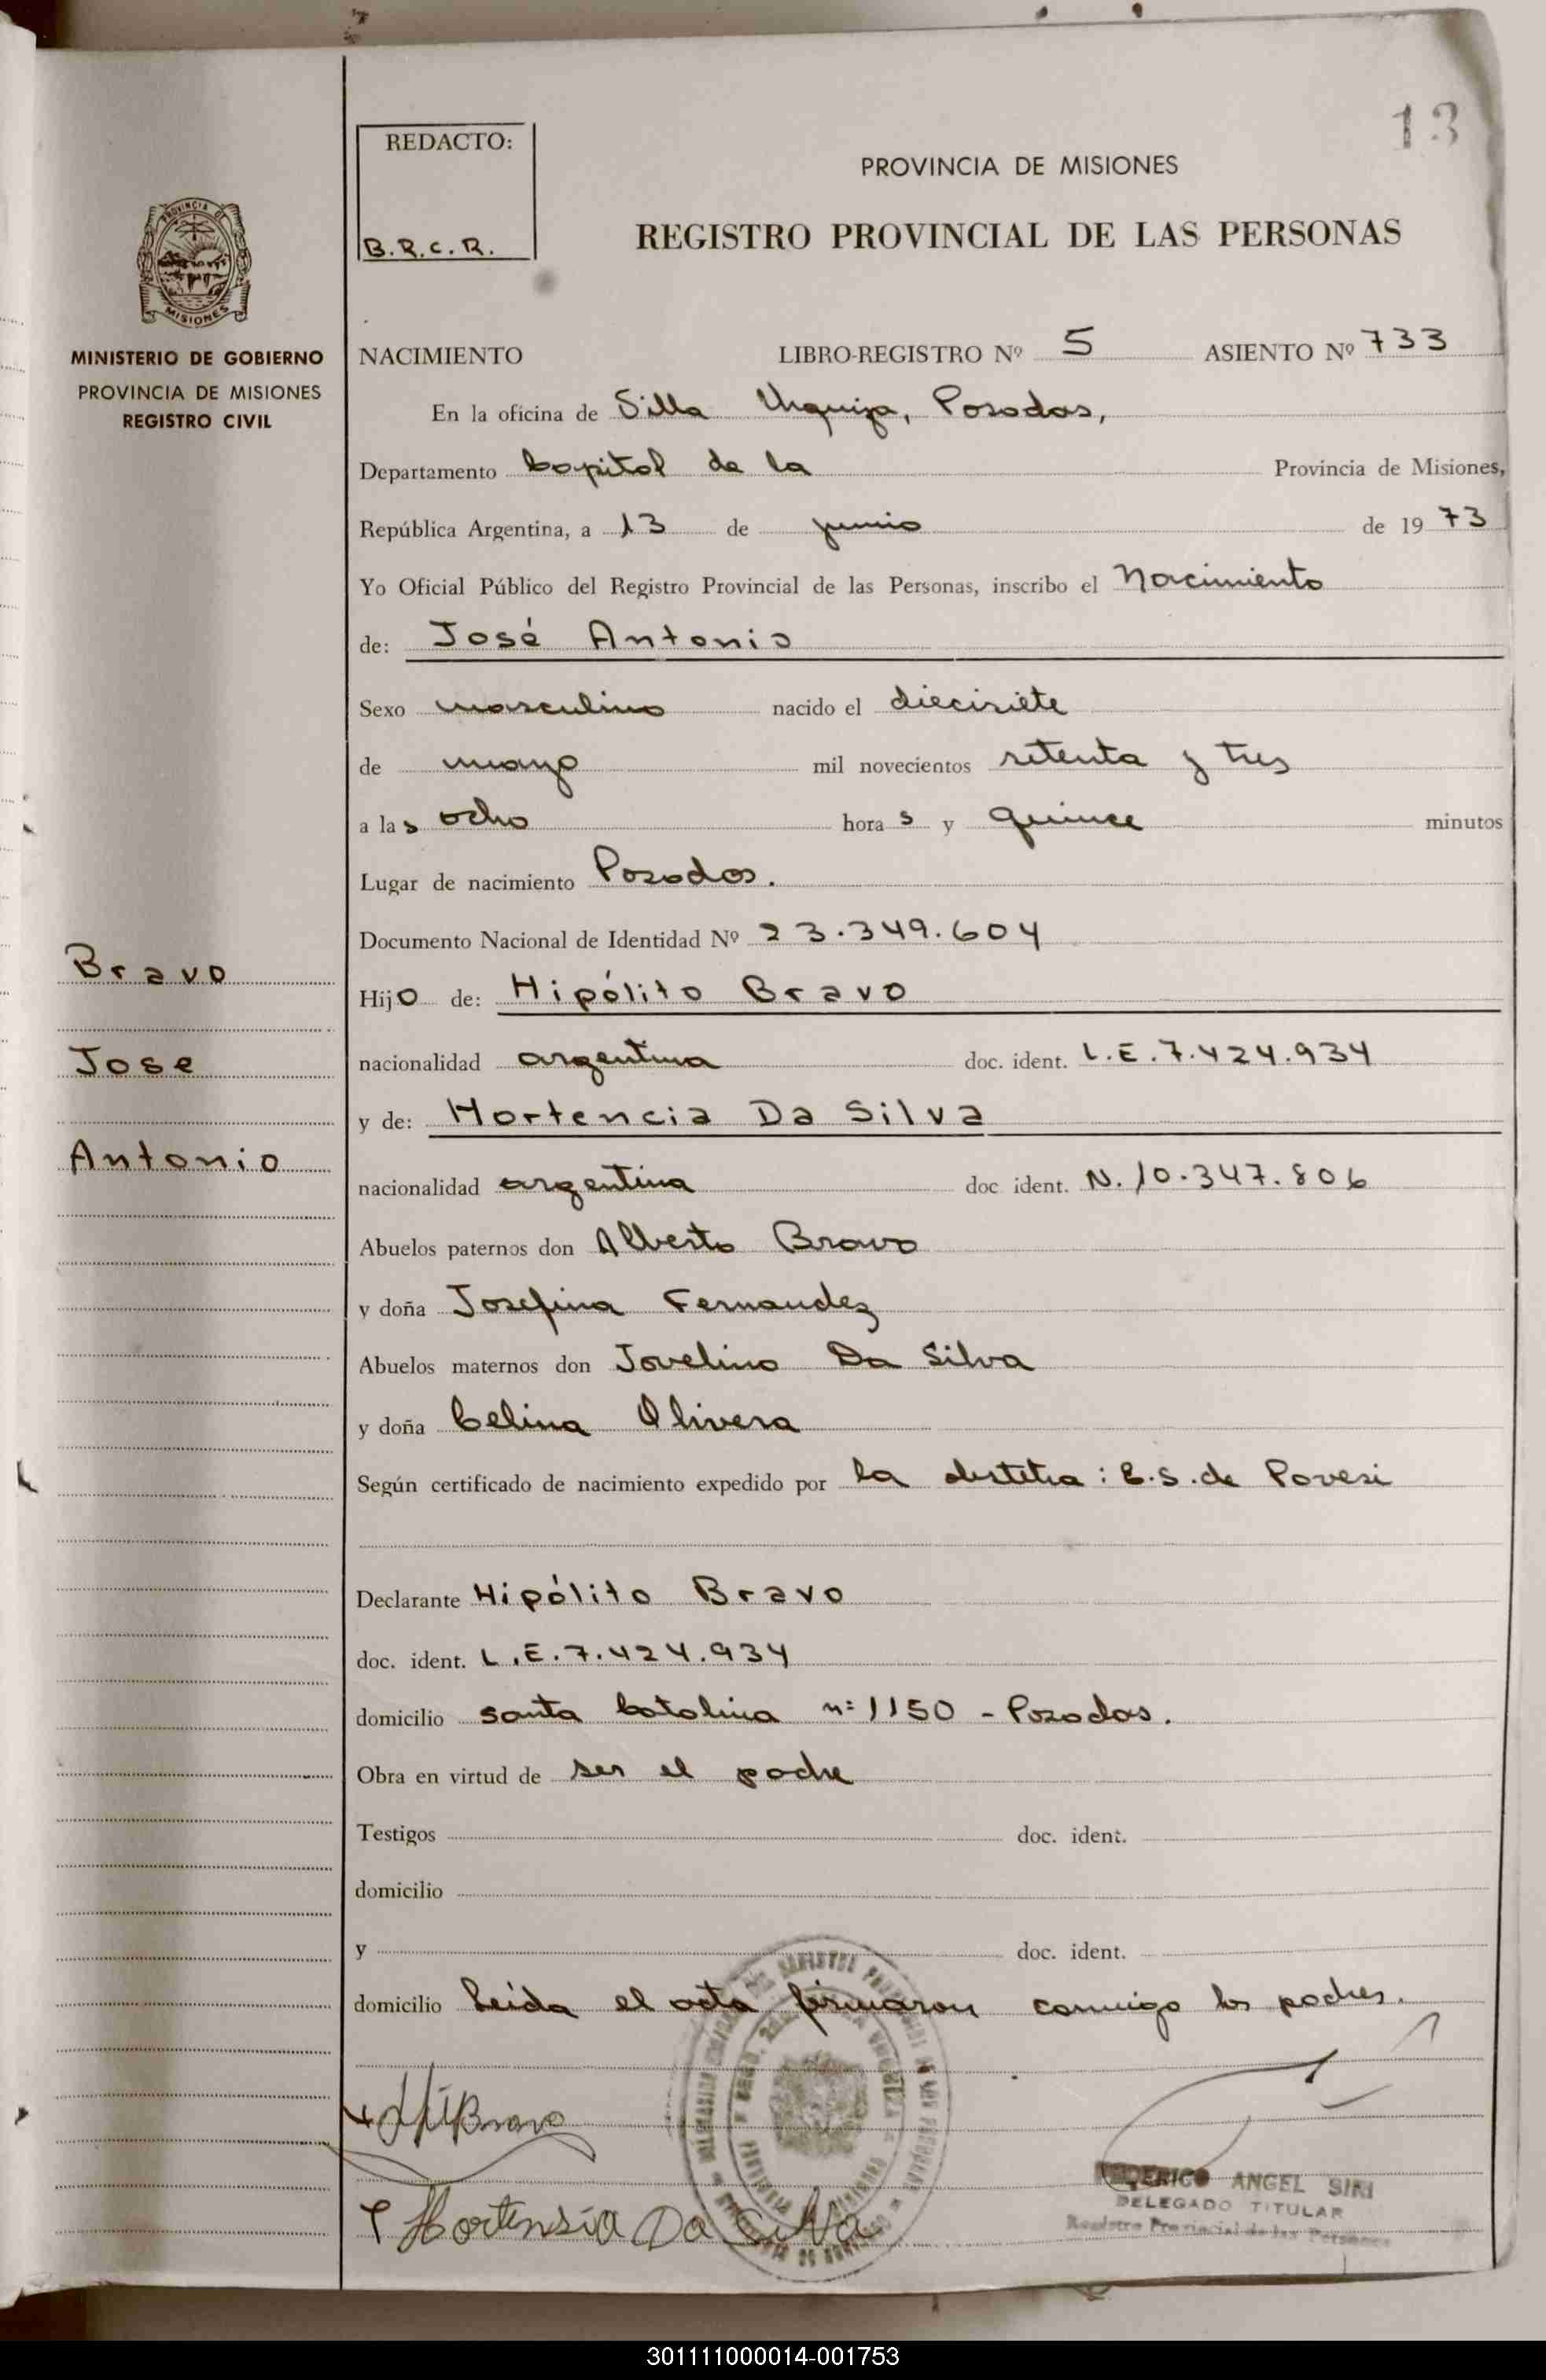 13
REDACTO:
B.R.C.R.
PROVINCIA DE MISIONES
REGISTRO PROVINCIAL DE LAS PERSONAS
PROVINCIA DE
MISIONES
MINISTERIO DE GOBIERNO
PROVINCIA DE MISIONES
REGISTRO CIVIL
NACIMIENTO LIBRO-REGISTRO Nº 5 ASIENTO Nº 733
En la oficina de Silla Urquiza, Posadas,
Departamento Capital de la Provincia de Misiones,
República Argentina, a 13 de junio de 1973
Yo Oficial Público del Registro Provincial de las Personas, inscribo el Nacimiento
de: José Antonio
Sexo masculino nacido el diecisiete
de mayo mil novecientos setenta y tres
a las ocho horas y quince minutos
Lugar de nacimiento Posadas.
Documento Nacional de Identidad Nº 23.349.604
Hijo de: Hipólito Bravo
nacionalidad argentina doc. ident. L.E.7.424.934
y de: Hortencia Da Silva
nacionalidad argentina doc ident. N.10.347.806
Abuelos paternos don Alberto Bravo
y doña Josefina Fernandez
Abuelos maternos don Jovelino Da Silva
y doña Celina Olivera
Según certificado de nacimiento expedido por la obstetra: E.S. de Povesi
Declarante Hipólito Bravo
doc. ident. L.E.7.424.934
domicilio Santa Catalina nº 1150 - Posadas.
Obra en virtud de ser el padre
Testigos doc. ident.
domicilio
y doc. ident.
domicilio Leída el acta firmaron conmigo los padres.
Bravo
Jose
Antonio
Bravo
Hortensia Da Silva
FEDERICO ANGEL SIRI
DELEGADO TITULAR
Registro Provincial de las Personas
301111000014-001753